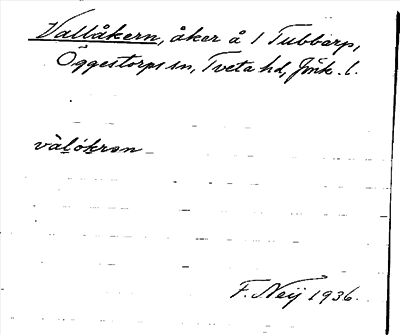 Vallåkern, åker å 1 Tubbarp,
Öggestorps sn, Tveta hd, Jönk. l.
vàlókrən
F. Neij 1936.